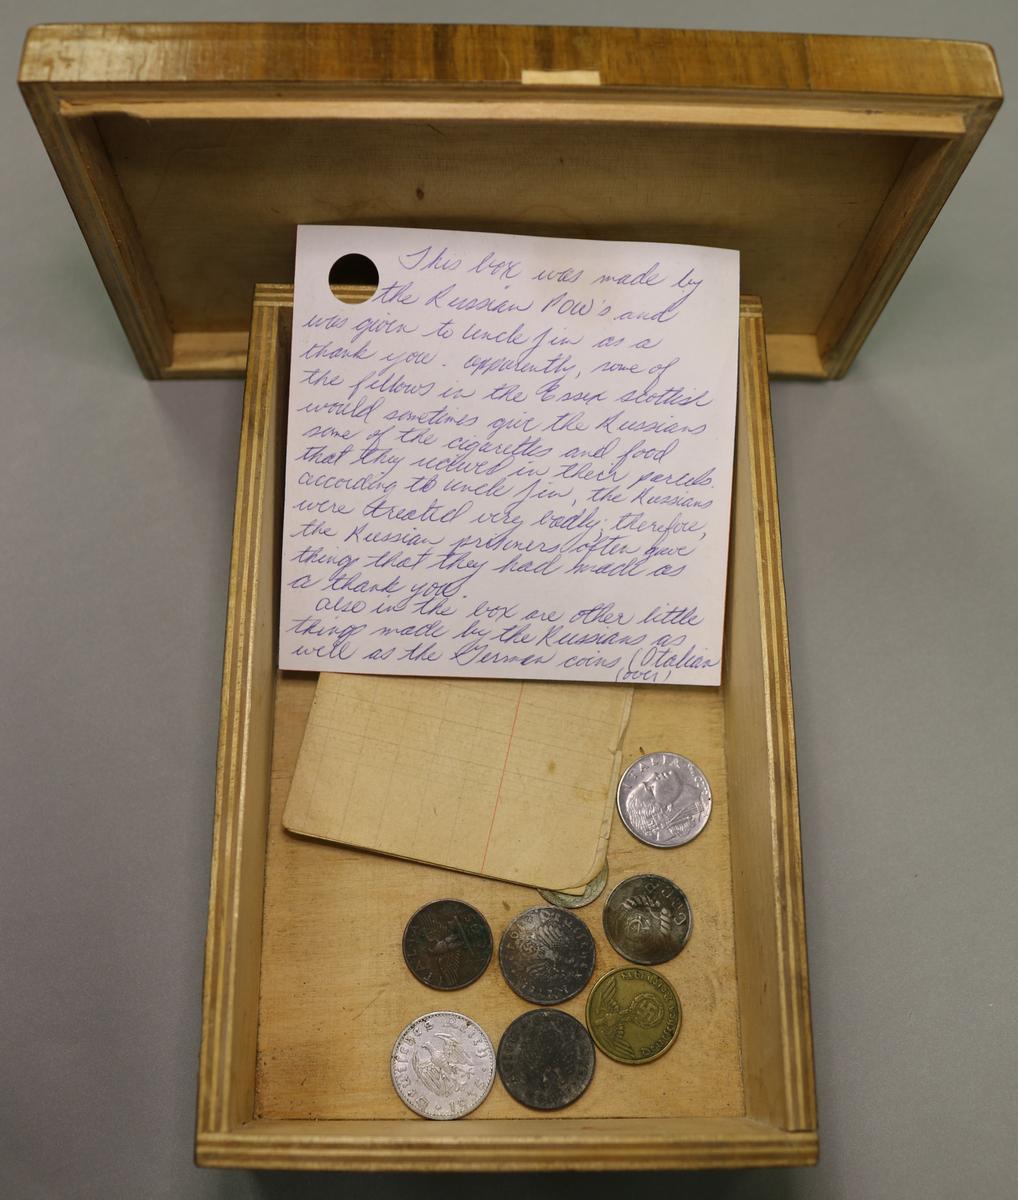 This box was made by
the Russian POW's and
was given to Uncle Jim as a
thank you. apparently, some of
the fellows in the Essex Scottish
would sometimes give the Russians
some of the cigarettes and food
that they recived in their parcels.
according to Uncle Jim, the Russians
were treated very badly; therefore,
the Russian prisoners often gave
things that they had made as
a thank you.
also in the box are other little
things made by the Russians as
well as the German coins (Italian
(over)
ITALIA
DEUTSCHES REICH